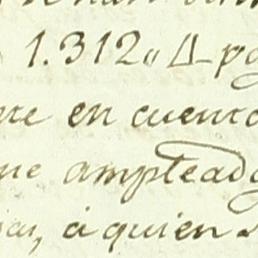 1.312,, Δ po
re en cuenta
ne ampleado
, a quien